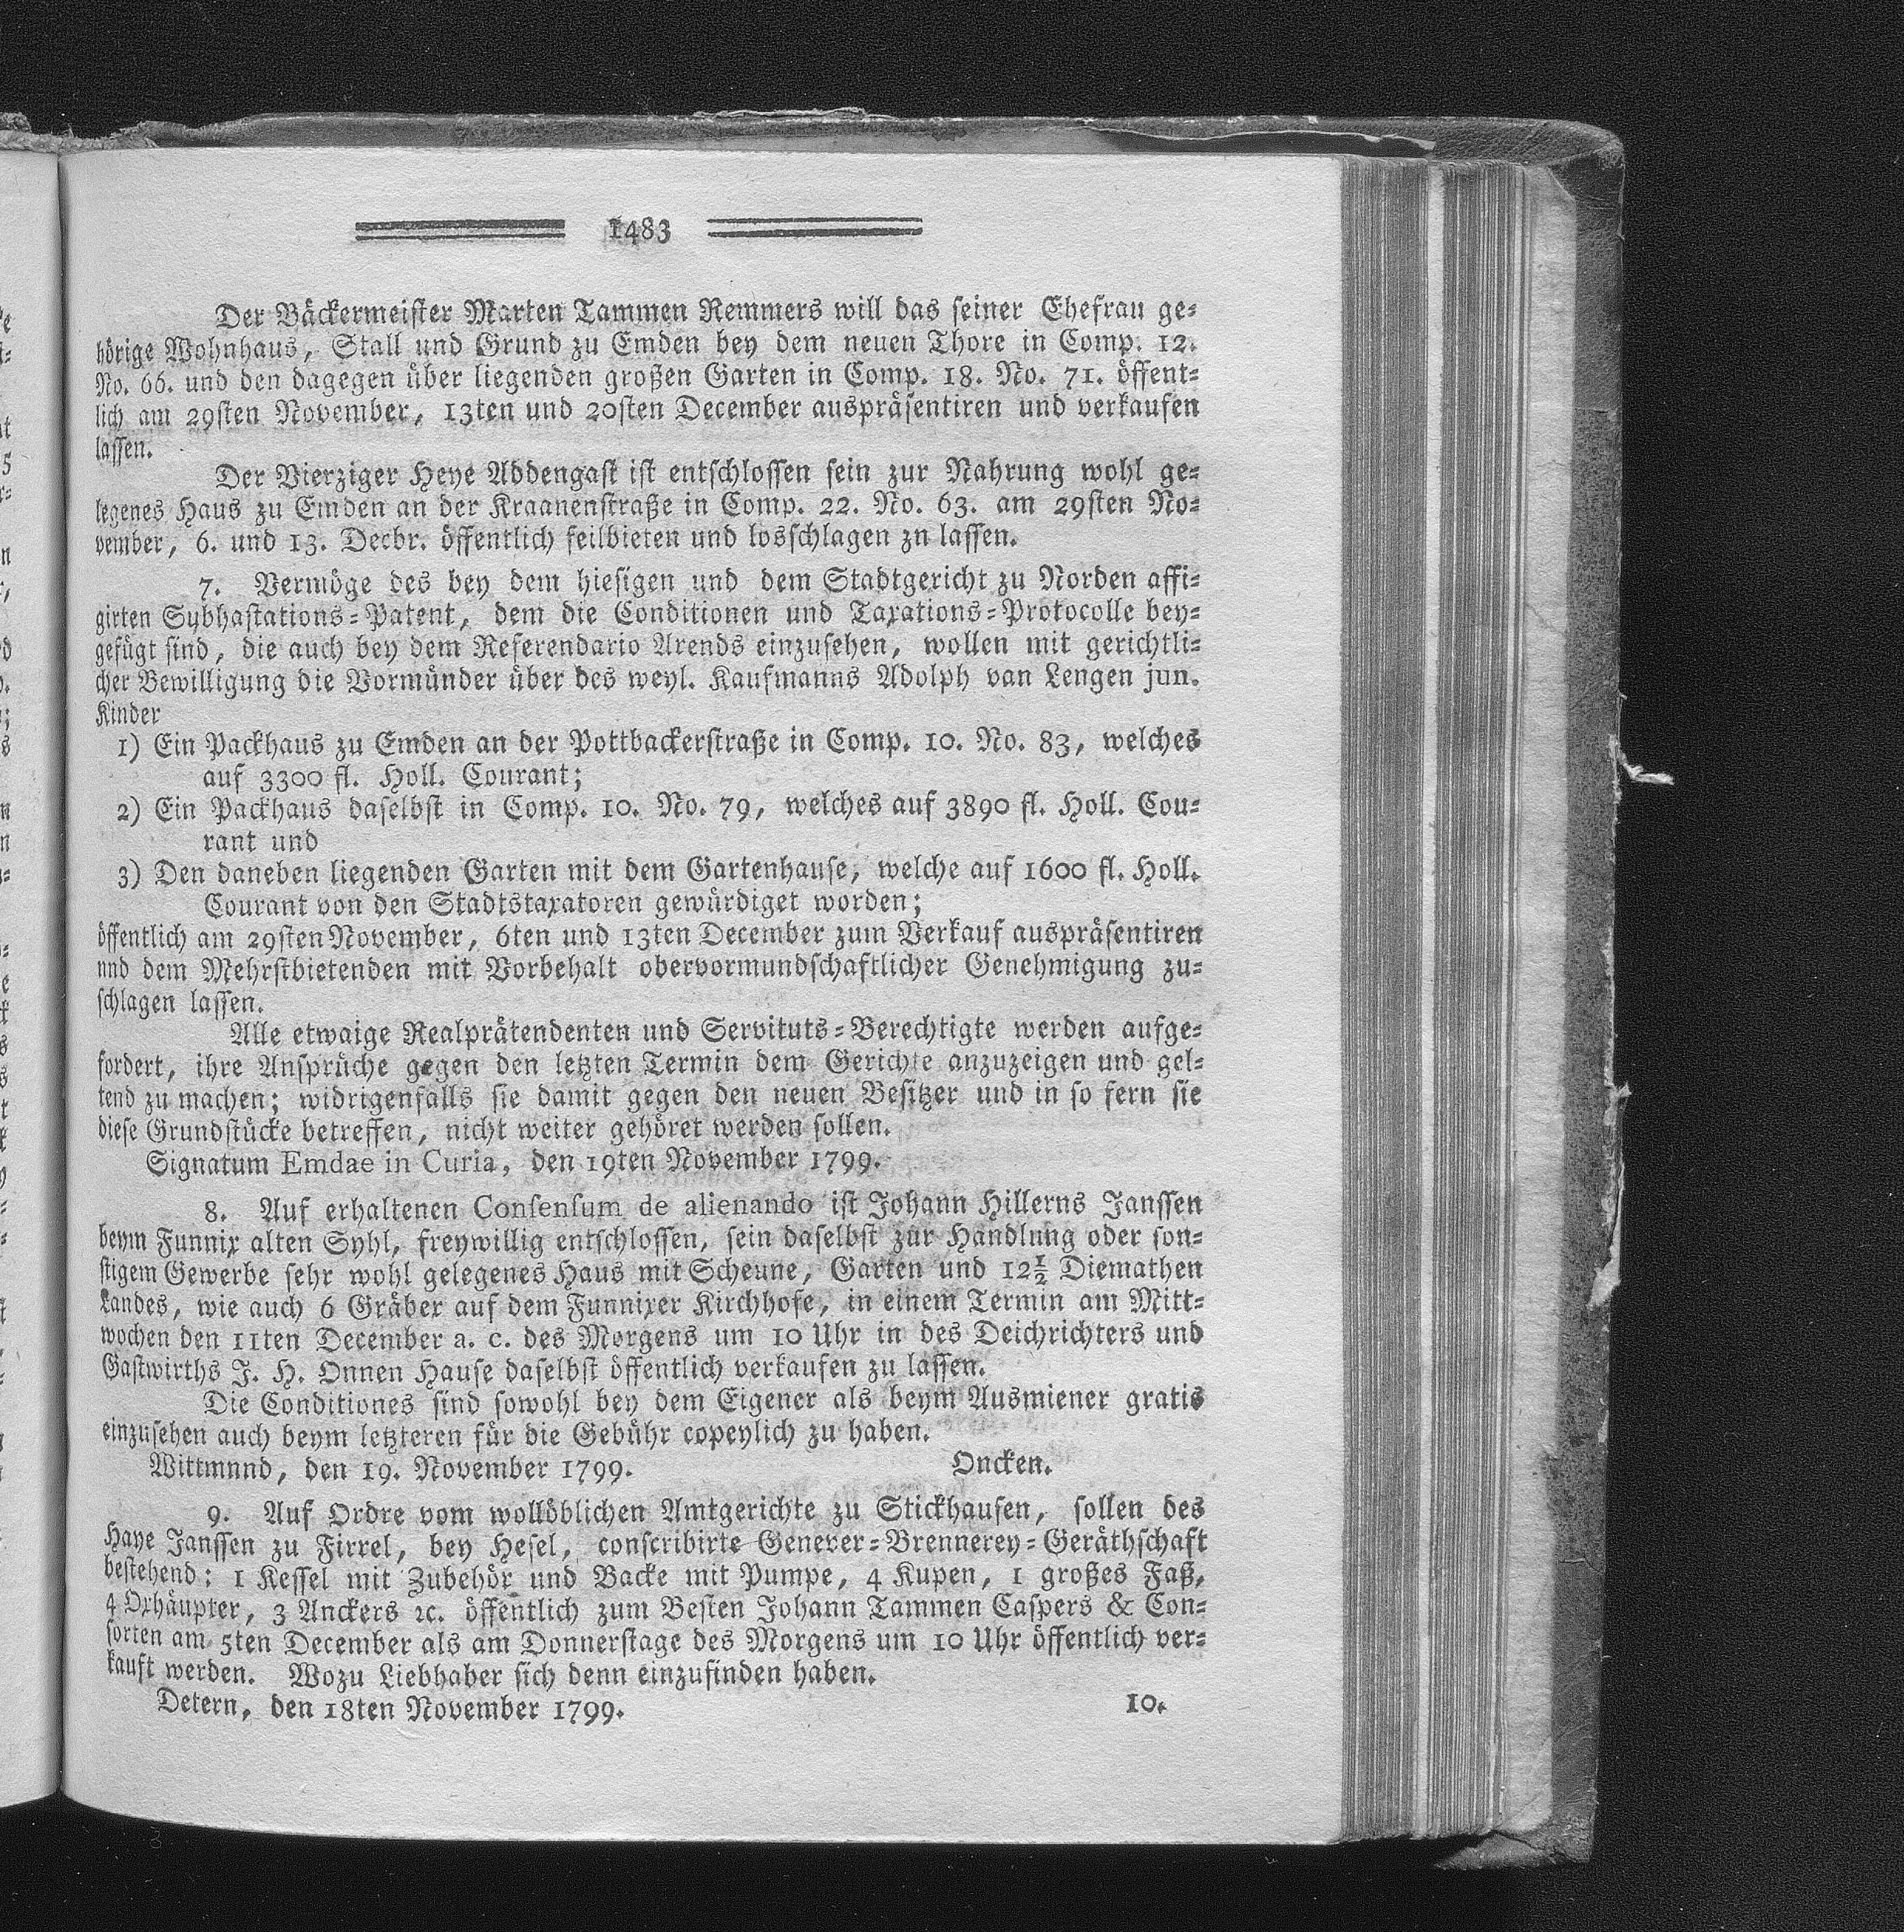 1483
Der Bäckermeister Marten Tammen Remmers will das seiner Ehefrau ge-
hörige Wohnhaus, Stall und Grund zu Emden bey dem neuen Thore in Comp. 12.
No. 66. und den dagegen über liegenden großen Garten in Comp. 18. No. 71. öffent-
lich am 29sten November, 13ten und 20sten December auspräsentiren und verkaufen
lassen.
Der Vierziger Heye Addengast ist entschlossen sein zur Nahrung wohl ge-
legenes Haus zu Emden an der Kraanenstraße in Comp. 22. No. 63. am 29sten No-
vember, 6. und 13. Decbr. öffentlich feilbieten und losschlagen zn lassen.
7. Vermöge des bey dem hiesigen und dem Stadtgericht zu Norden affi-
girten Sybhastations-Patent, dem die Conditionen und Taxations-Protocolle bey-
gefügt sind, die auch bey dem Referendario Arends einzusehen, wollen mit gerichtli-
cher Bewilligung die Vormünder über des weyl. Kaufmanns Adolph van Lengen jun.
Kinder
1) Ein Packhaus zu Emden an der Pottbackerstraße in Comp. 10. No. 83, welches
auf 3300 fl. Holl. Courant;
2) Ein Packhaus daselbst in Comp. 10. No. 79, welches auf 3890 fl. Holl. Cou-
rant und
3) Den daneben liegenden Garten mit dem Gartenhause, welche auf 1600 fl. Holl.
Courant von den Stadtstaxatoren gewürdiget worden;
öffentlich am 29sten November, 6ten und 13ten December zum Verkauf auspräsentiren
nnd dem Mehrstbietenden mit Vorbehalt obervormundschaftlicher Genehmigung zu-
schlagen lassen.
Alle etwaige Realprätendenten und Servituts-Berechtigte werden aufge-
fordert, ihre Ansprüche gegen den letzten Termin dem Gerichte anzuzeigen und gel-
tend zu machen; widrigenfalls sie damit gegen den neuen Besitzer und in so fern sie
diese Grundstücke betreffen, nicht weiter gehöret werden sollen.
Signatum Emdae in Curia, den 19ten November 1799.
8. Auf erhaltenen Consensum de alienando ist Johann Hillerns Janssen
beym Funnix alten Syhl, freywillig entschlossen, sein daselbst zur Handlung oder son-
stigem Gewerbe sehr wohl gelegenes Haus mit Scheune, Garten und 12½ Diemathen
Landes, wie auch 6 Gräber auf dem Funnixer Kirchhofe, in einem Termin am Mitt-
wochen den 11ten December a. c. des Morgens um 10 Uhr in des Deichrichters und
Gastwirths J. H. Onnen Hause daselbst öffentlich verkaufen zu lassen.
Die Conditiones sind sowohl bey dem Eigener als beym Ausmiener gratis
einzusehen auch beym letzteren für die Gebühr copeylich zu haben.
Wittmnnd, den 19. November 1799. Oncken.
9. Auf Ordre vom wollöblichen Amtgerichte zu Stickhausen, sollen des
Haye Janssen zu Firrel, bey Hesel, conscribirte Genever-Brennerey-Geräthschaft
bestehend: 1 Kessel mit Zubehör und Backe mit Pumpe, 4 Kupen, 1 großes Faß,
4 Oxhäupter, 3 Anckers ꝛc. öffentlich zum Besten Johann Tammen Caspers & Con-
sorten am 5ten December als am Donnerstage des Morgens um 10 Uhr öffentlich ver-
kauft werden. Wozu Liebhaber sich denn einzufinden haben.
Detern, den 18ten November 1799. 10.